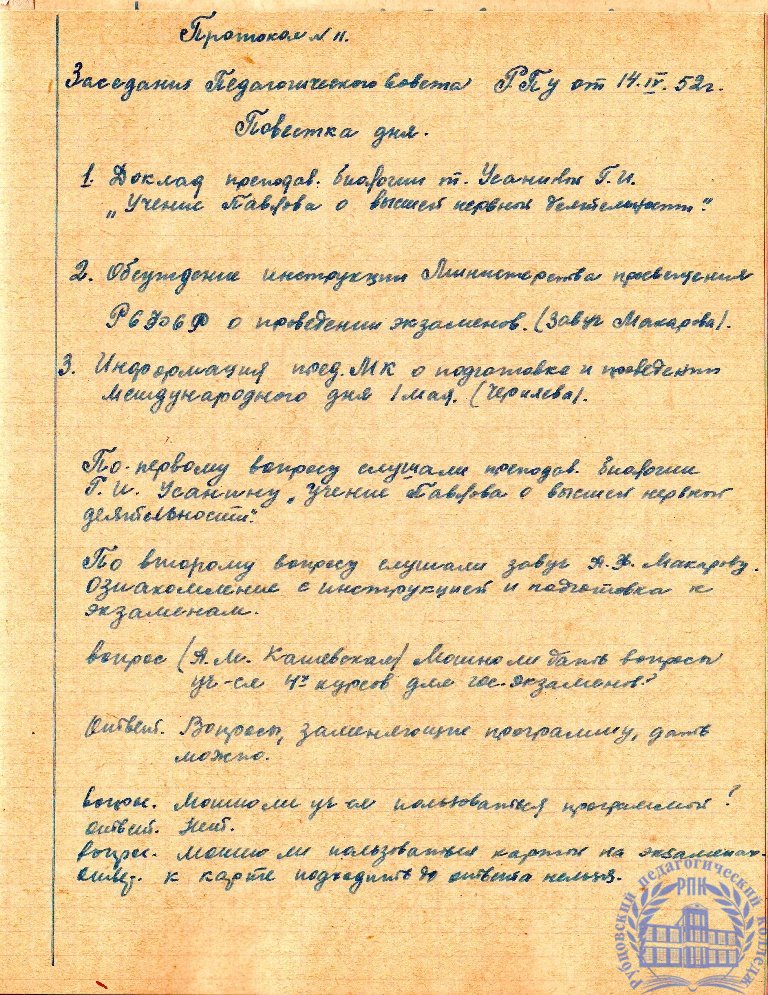 Протокол № 11.
Заседания Педагогического Совета РПУ от 14.IV.52г.
Повестка дня.
1. Доклад преподав. биологии т. Усаниной Г.И.
„Учение Павлова о высшей нервной деятельности".
2. Обсуждение инструкции Министерства просвещения
РСФСР о проведении экзаменов. (Завуч Макарова).
3. Информация пред. МК о подготовке и проведении
международного дня 1 мая. (Чернлева).
По первому вопросу слушали преподав. биологии
Г. И. Усанину „Учение Павлова о высшей нервной
деятельности".
По второму вопросу слушали завуч А. Ф. Макарову.
Ознакомление с инструкцией и подготовка к
экзаменам.
вопрос (А. М. Кашевская) Можно ли дать вопросы
уч-ся 4х курсов для гос. экзаменов?
Ответ. Вопросы, заменяющие программу, дать
можно.
вопрос. Можно ли уч-ся пользоваться программой?
ответ. Нет.
вопрос. можно ли пользоваться картой на экзаменах.
ответ. к карте подходить до ответа нельзя.
РПК
Рубцовский педагогический колледж